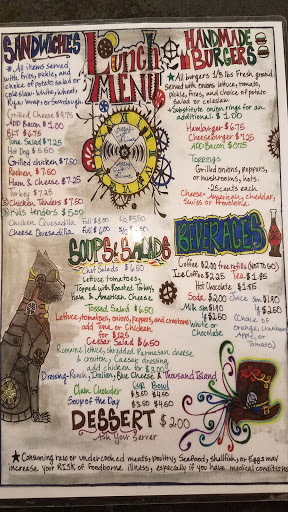 SANDWICHES
* All items served
with fries, pickle, and
choice of potato salad or
coleslaw. White, Wheat,
Rye, Wrap or Sourdough.
Grilled Cheese $4.75
ADD Bacon $1.00
BLT $6.75
Tuna Salad $7.25
Hot Dog $5.50
Grilled chicken $7.50
Reuben $7.50
Ham & Cheese $7.25
Turkey $7.25
Chicken Tenders $7.50
Kids tenders $5.00
Chicken Quesadilla
Cheese Quesadilla
Lunch
MENU
HANDMADE
BURGERS
* All burgers 1/3 lbs Fresh ground
served with onions, lettuce, tomato,
pickle, fries, and choice of potato
salad or coleslaw.
Substitute onion rings for an
additional $1.00
Hamburger $6.75
Cheeseburger $7.25
ADD Bacon
Toppings
Grilled onions, peppers,
or mushrooms, hots.
25 cents each
Cheese - American, cheddar,
Swiss or Provolone.
SOUPS & SALADS
Chef Salads $6.50
Lettuce, tomatoes,
Topped with Roasted Turkey,
Ham & American Cheese
Tossed Salad $6.50
Lettuce, tomatoes, onions, peppers, and croutons
add Tuna or Chicken
for
Caesar Salad $6.50
Romaine lettuce, shredded Parmesan cheese
& crouton, Caesar dressing
add chicken for
Dressing - Ranch, Italian, Blue Cheese & Thousand Island
Cup Bowl
Clam Chowder
Soup of the Day
DESSERT $2.00
Ask Your Server
BEVERAGES
Coffee $2.00 free refills (NOT TO GO)
Ice Coffee $2.25 Tea $1.85
Hot Chocolate $1.85
Soda $2.00 Juice Sm $1.90
Milk Sm $1.90 Lg $2.50
Lg $2.50
White or
Chocolate
(Choice of
Orange, Cranberry,
Apple, or
Tomato)
* Consuming raw or undercooked meats, poultry, Seafood, shellfish, or Eggs may
increase your RISK of foodborne illness, especially if you have medical conditions